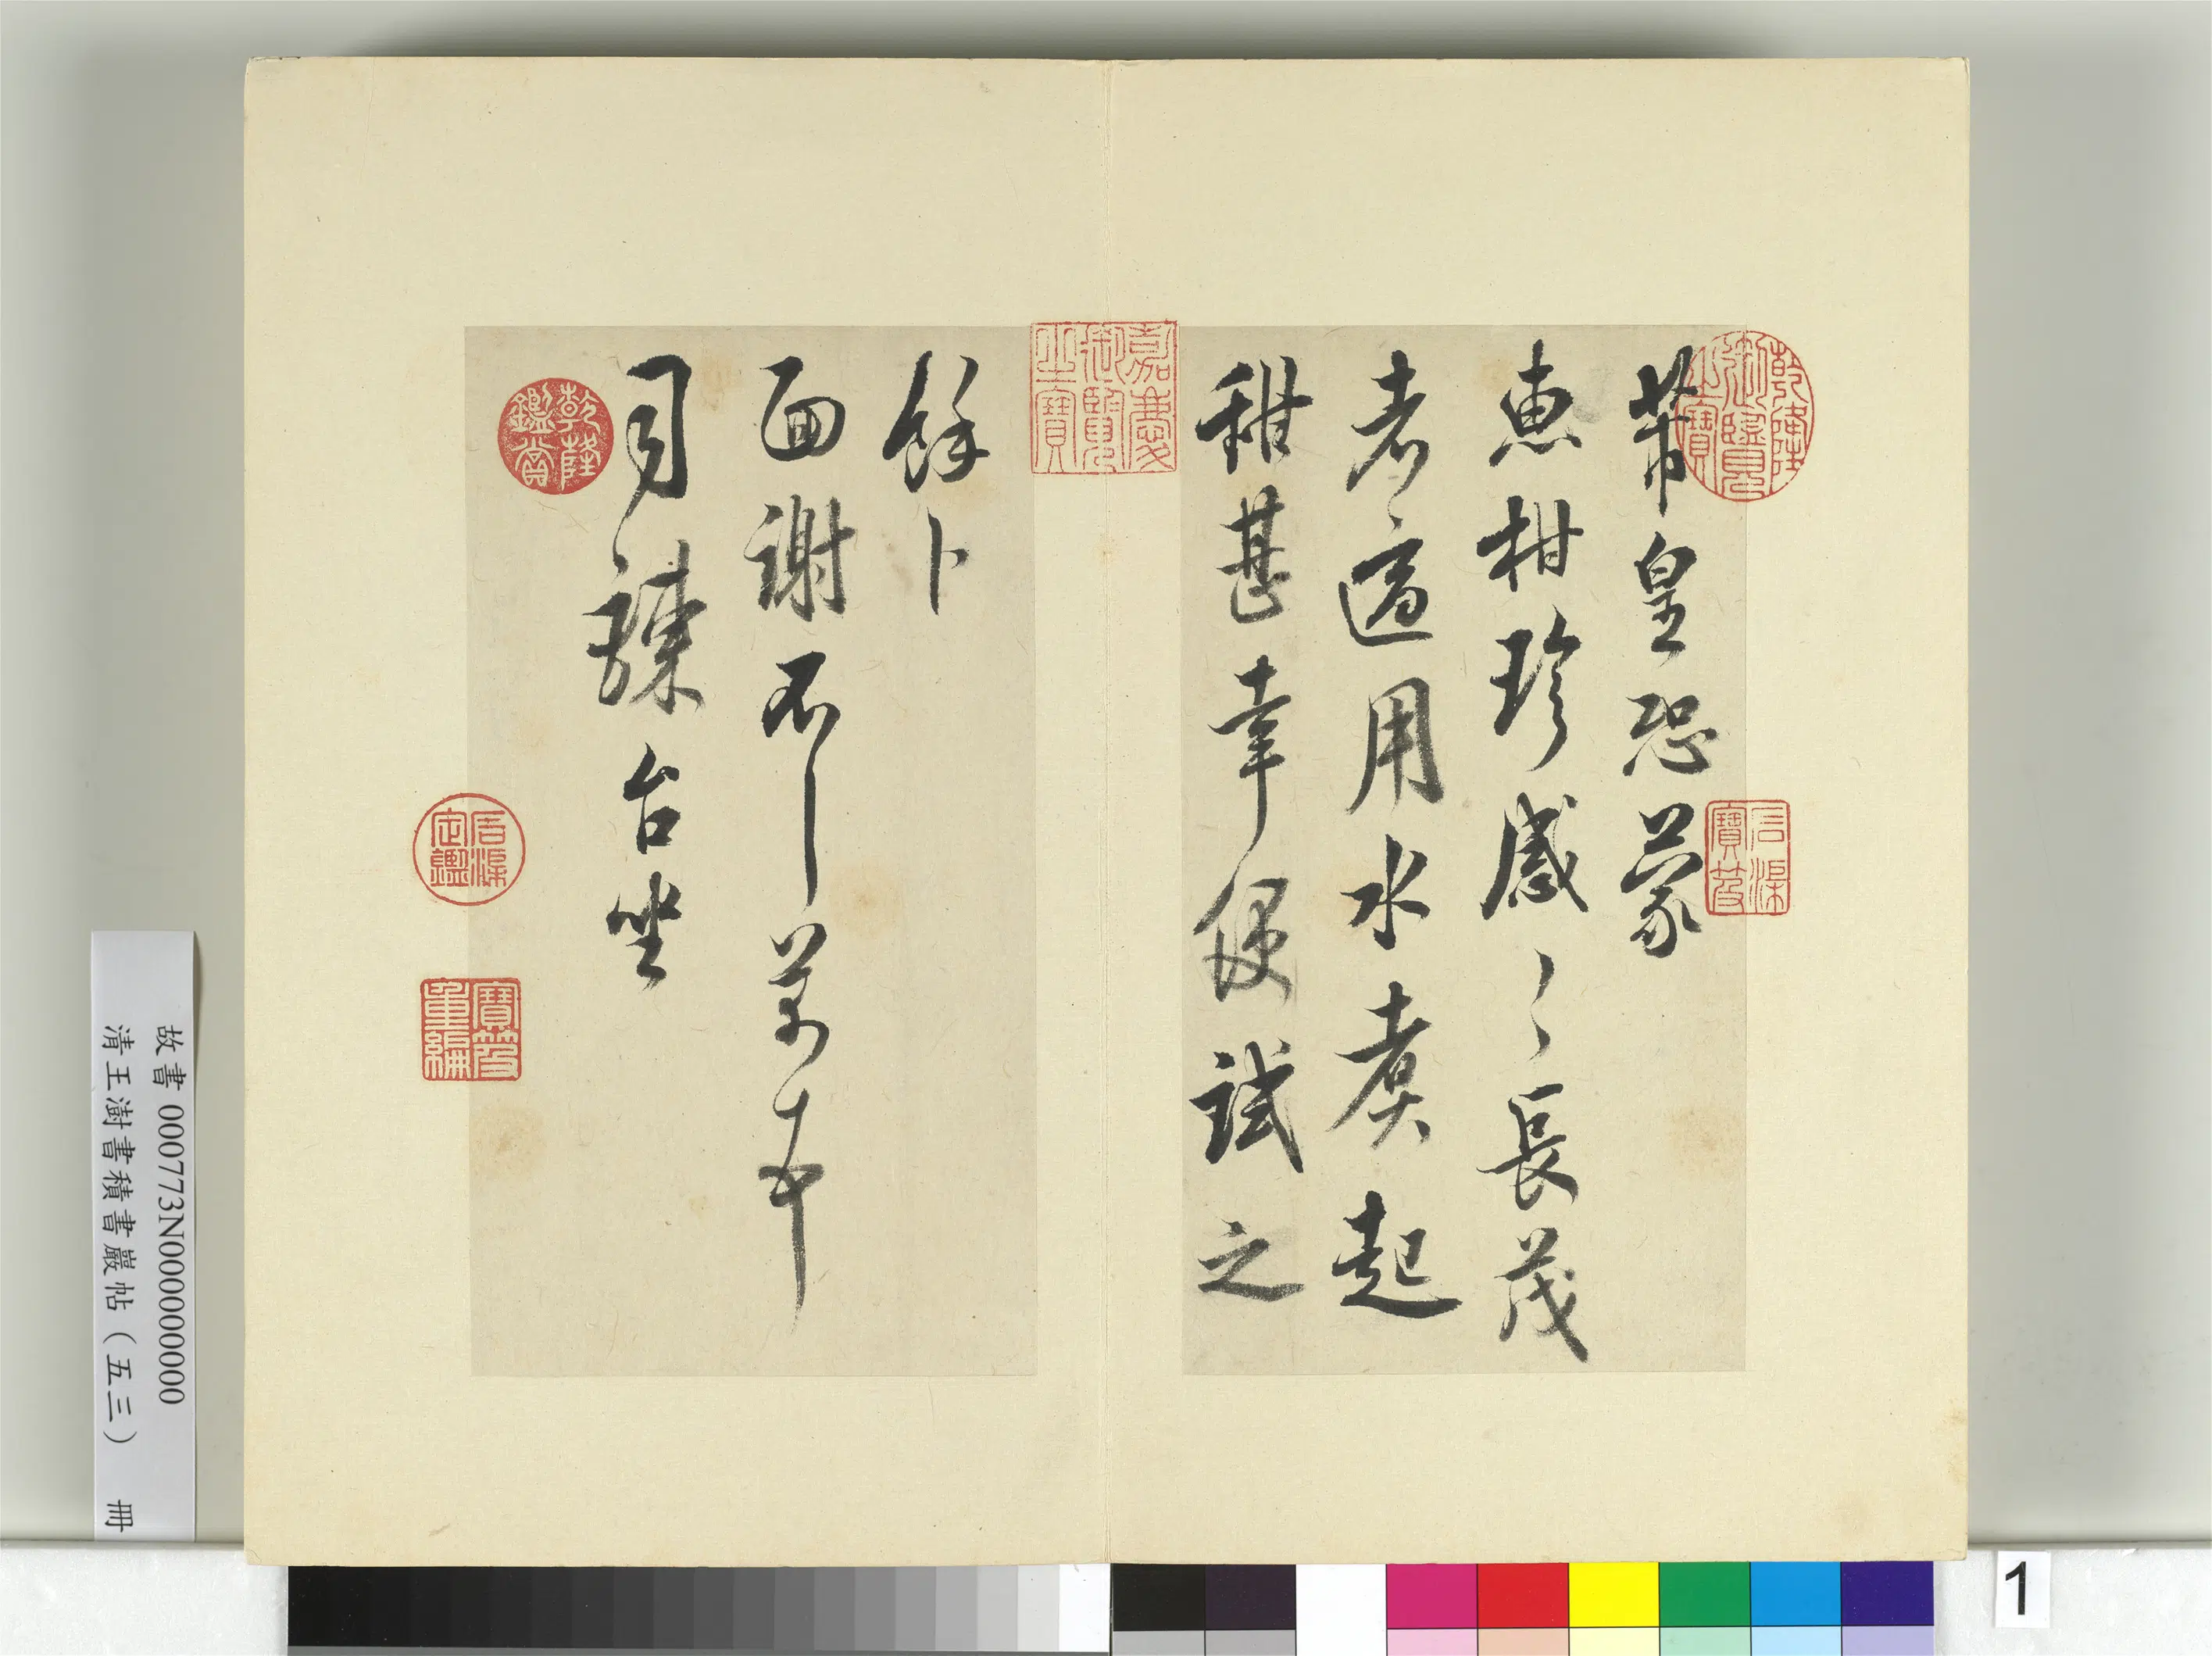 芾皇恐蒙
惠柑珍感〻長茂
者適用水煑起
稍甚幸便試之
餘卜
面謝不一一芾頓首
司諫台坐
乾隆御覽之寶
石渠寶笈
嘉慶御覽之寶
乾隆鑑賞
石渠定鑑
寶笈重編
故書 000773N000000000
清王澍書積書巖帖（五三） 冊
1